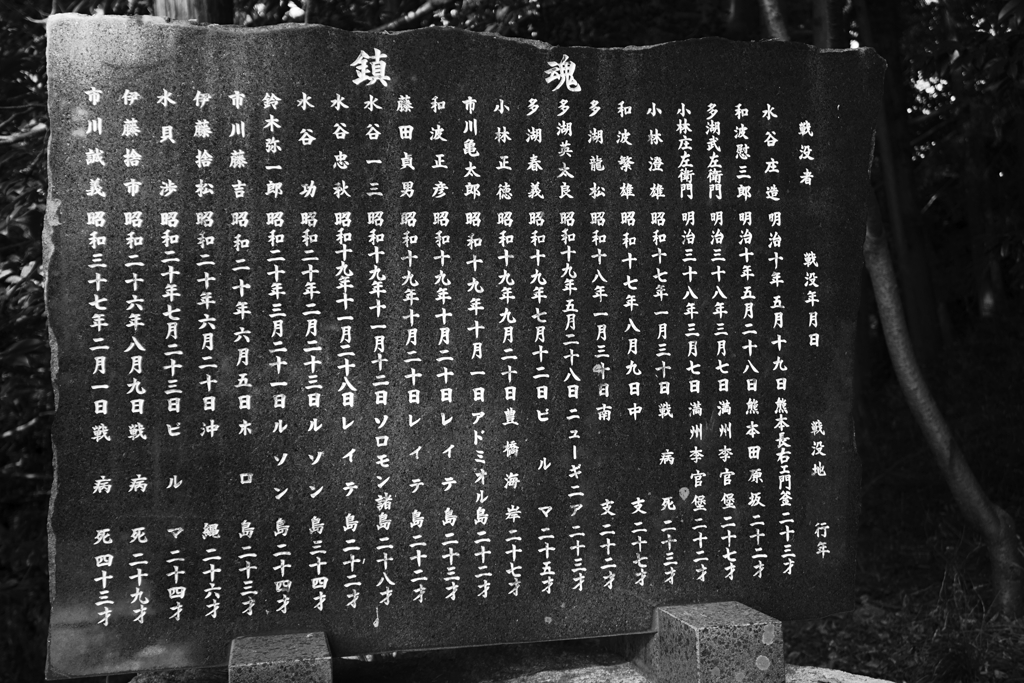 鎮魂
戦没者 戦没年月日 戦没地 行年
水谷庄造 明治十年五月十九日 熊本長右エ門釜 二十三才
和波慰三郎 明治十年五月二十八日 熊本田原坂 二十二才
多湖武左衛門 明治三十八年三月七日 満州李官堡 二十七才
小林庄左衛門 明治三十八年三月七日 満州李官堡 二十二才
小林澄雄 昭和十七年一月三十日 戦病死 二十三才
和波繁雄 昭和十七年八月九日 中支 二十七才
多湖龍松 昭和十八年一月三十日 南支 二十二才
多湖英太良 昭和十九年五月二十八日 ニューギニア 二十三才
多湖春義 昭和十九年七月十二日 ビルマ 二十五才
小林正徳 昭和十九年九月二十日 豊橋海岸 二十七才
市川亀太郎 昭和十九年十月一日 アドミオル島 二十二才
和波正彦 昭和十九年十月二十日 レイテ島 二十三才
藤田貞男 昭和十九年十月二十日 レイテ島 二十二才
水谷一三 昭和十九年十一月十二日 ソロモン諸島 二十八才
水谷忠秋 昭和十九年十一月二十八日 レイテ島 二十二才
水谷功 昭和二十年二月二十三日 ルソン島 三十四才
鈴木弥一郎 昭和二十年三月二十一日 ルソン島 二十四才
市川藤吉 昭和二十年六月五日 ホロ島 二十三才
伊藤捨松 昭和二十年六月二十日 沖縄 二十六才
水貝渉 昭和二十年七月二十三日 ビルマ 二十四才
伊藤捨市 昭和二十六年八月九日 戦病死 二十九才
市川誠義 昭和三十七年二月一日 戦病死 四十三才